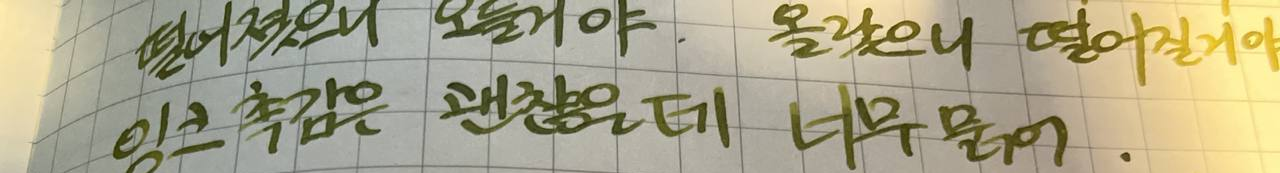 떨어졌으니 오를거야. 올랐으니 떨어질거야
잉크 촉감은 괜찮은데 너무 묽어.